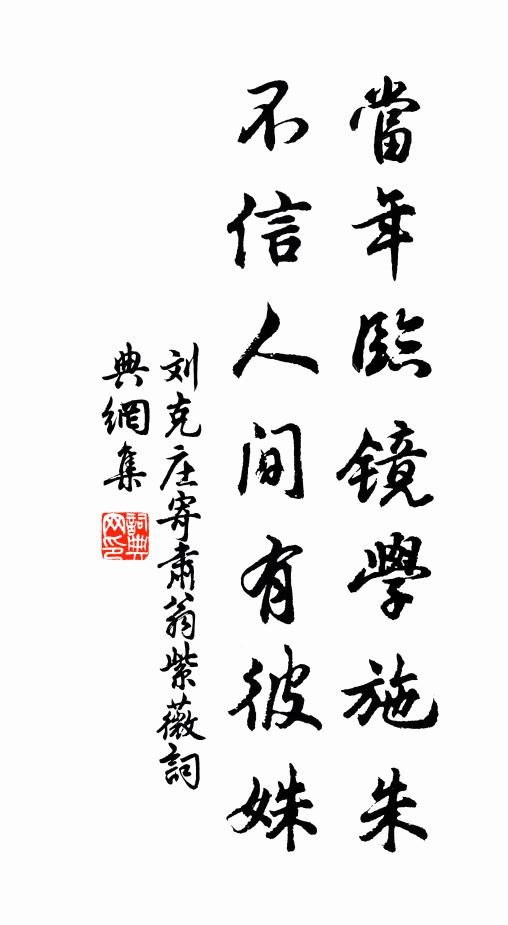 當年臨鏡學施朱
不信人间有彼姝
刘克庄寄肅翁紫薇詞
典網集
詞典
网印